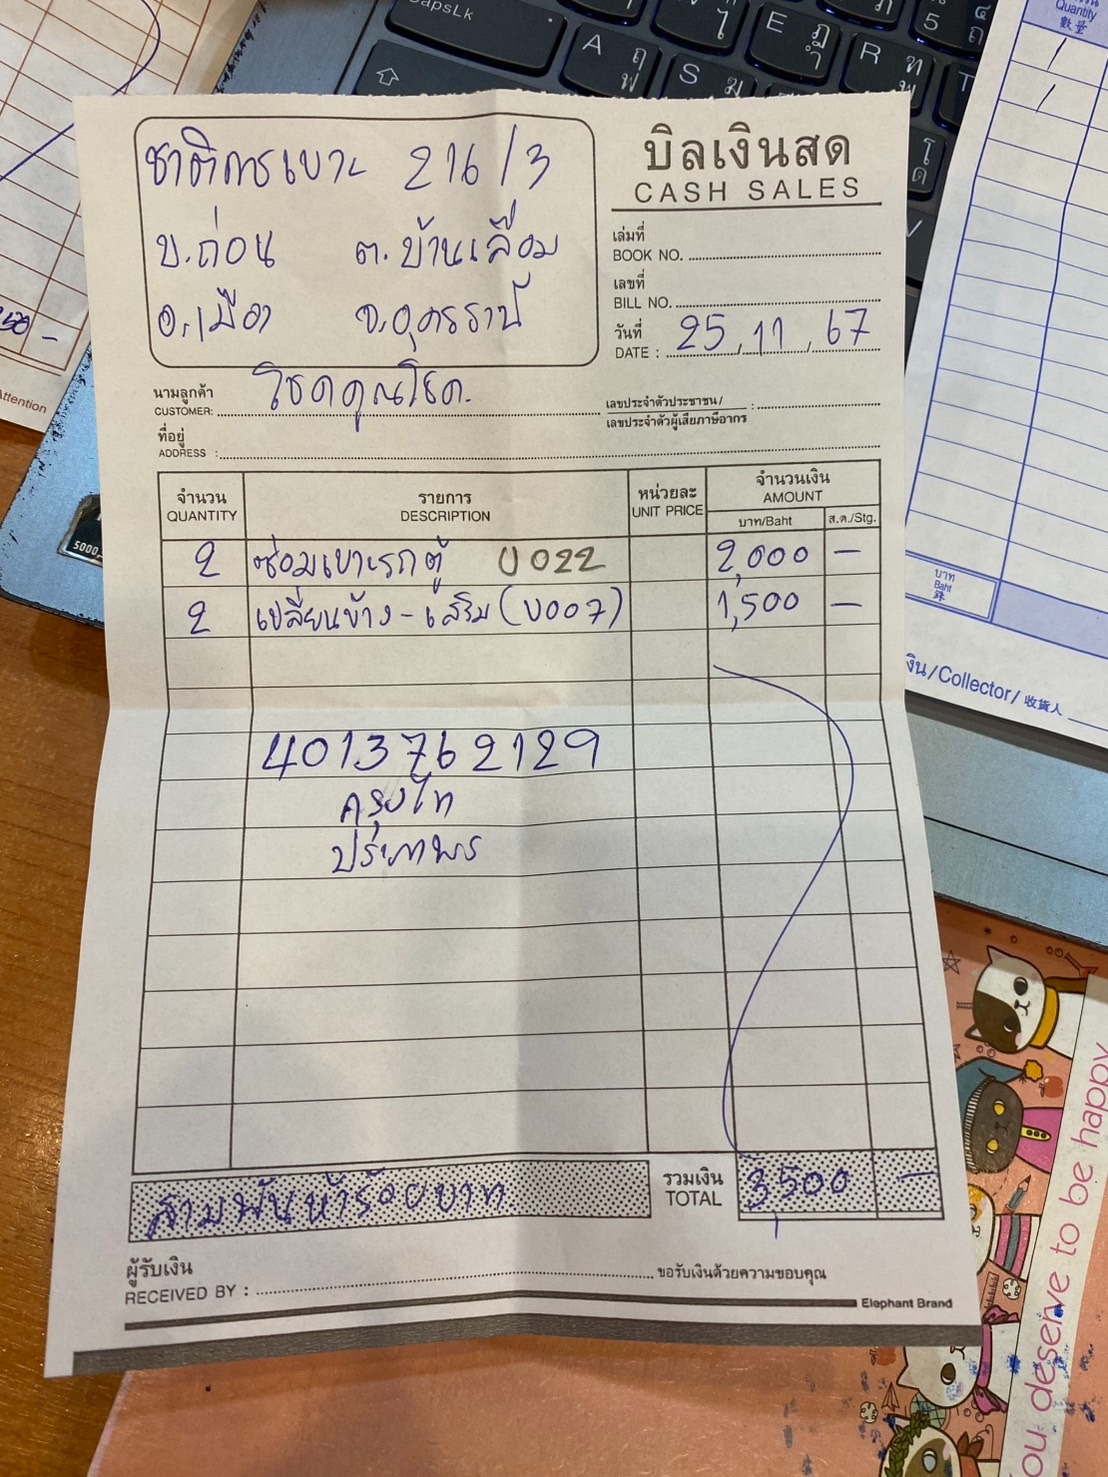 ชาติการเบาะ 216/3
บ.ถ่อน ต.บ้านเลื่อม
อ.เมือง จ.อุดรธานี
บิลเงินสด
CASH SALES
เล่มที่
BOOK NO.
เลขที่
BILL NO.
วันที่
DATE : 25, 11, 67
นามลูกค้า
CUSTOMER: โชคคูณโชค.
เลขประจำตัวประชาชน /
เลขประจำตัวผู้เสียภาษีอากร :
ที่อยู่
ADDRESS :
จำนวน รายการ หน่วยละ จำนวนเงิน
QUANTITY DESCRIPTION UNIT PRICE AMOUNT
บาท/Baht ส.ต./Stg.
2 ซ่อมเบาะรถตู้ U022 2,000 —
2 เปลี่ยนข้าง - เสริม (U007) 1,500 —
4013762129
กรุงไท
ประภาพร
สามพันห้าร้อยบาท
รวมเงิน
TOTAL 3,500 —
ผู้รับเงิน
RECEIVED BY : ขอรับเงินด้วยความขอบคุณ
Elephant Brand
CapsLk
A
S
E
R
T
5
Attention
5000
Quantity
數量
บาท
Baht
งิน/Collector/ 收貨人
ou deserve to be happy